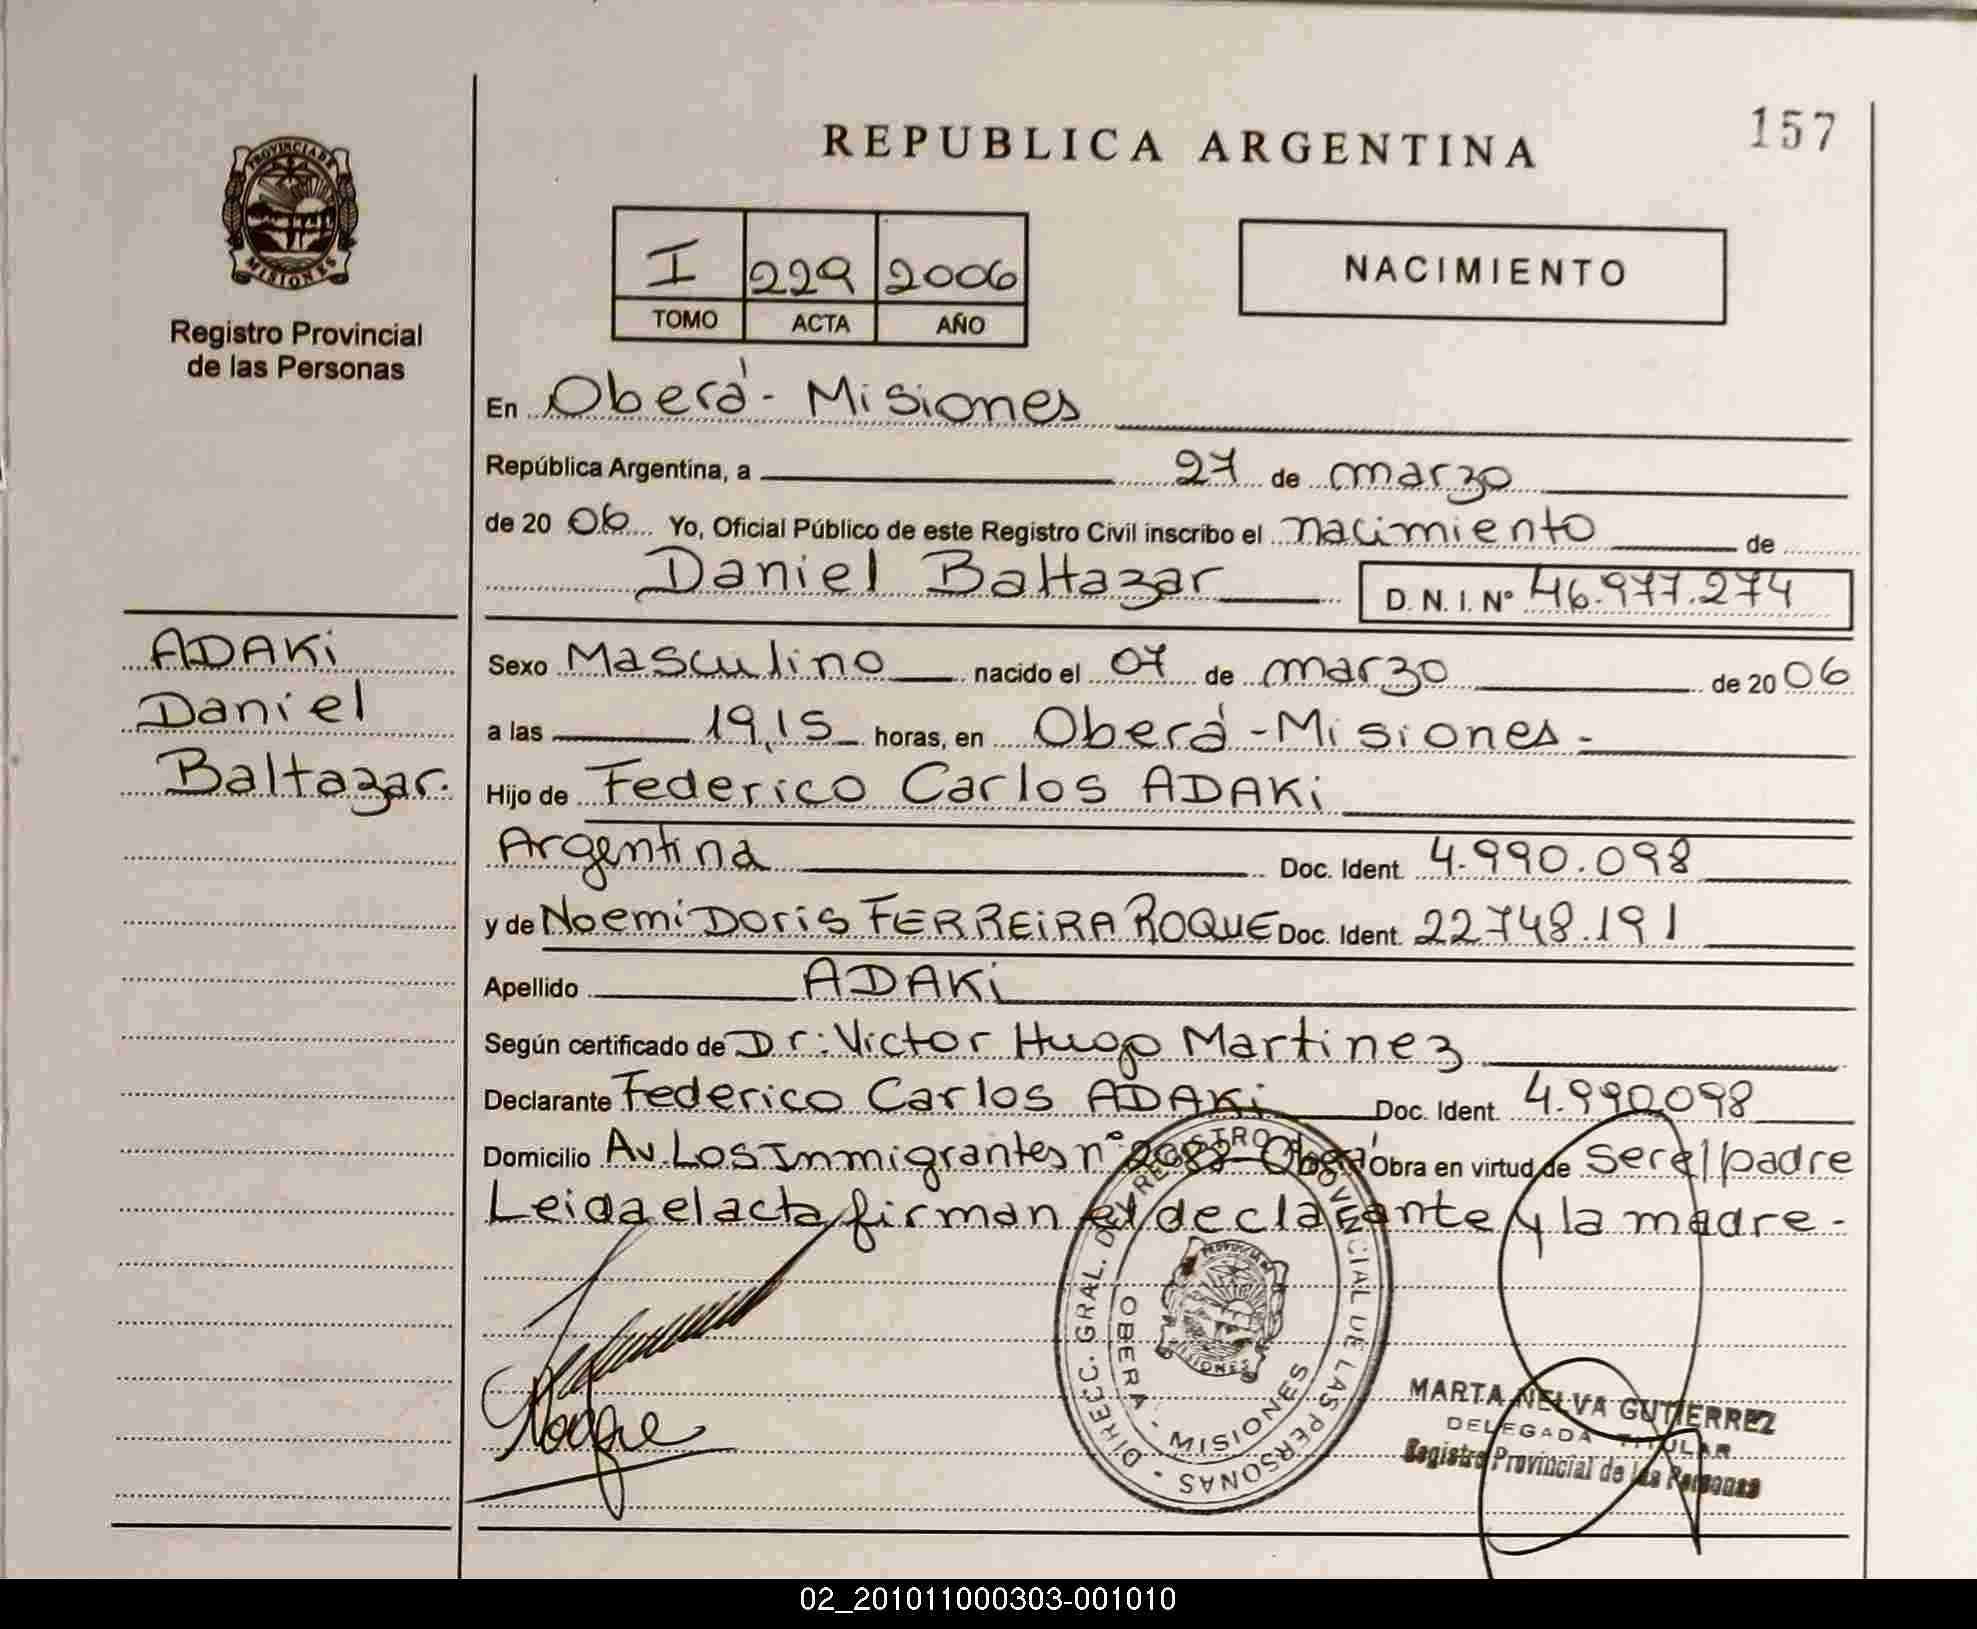 157
REPUBLICA ARGENTINA
PROVINCIA DE
MISIONES
Registro Provincial
de las Personas
I 229 2006
TOMO ACTA AÑO
NACIMIENTO
En Oberá - Misiones
República Argentina, a 27 de marzo
de 20 06 Yo, Oficial Público de este Registro Civil inscribo el nacimiento de
Daniel Baltazar D. N. I. Nº 46.977.274
ADAKi
Daniel
Baltazar.
Sexo Masculino nacido el 07 de marzo de 20 06
a las 19,15 horas, en Oberá - Misiones -
Hijo de Federico Carlos ADAKi
Argentina Doc. Ident. 4.990.098
y de Noemi Doris FERREiRA ROQUE Doc. Ident. 22.748.191
Apellido ADAKi
Según certificado de Dr: Victor Hugo Martinez
Declarante Federico Carlos ADAKi Doc. Ident. 4.990.098
Domicilio Av. Los Inmigrantes nº Oberá Obra en virtud de ser el padre
Leida el acta firman el declarante y la madre -
DIREC. GRAL. DEL REGISTRO PROVINCIAL DE LAS PERSONAS -
OBERA - MISIONES
PROVINCIA DE
MISIONES
Roque
MARTA NELVA GUTIERREZ
DELEGADA TITULAR
Registro Provincial de las Personas
02_201011000303-001010